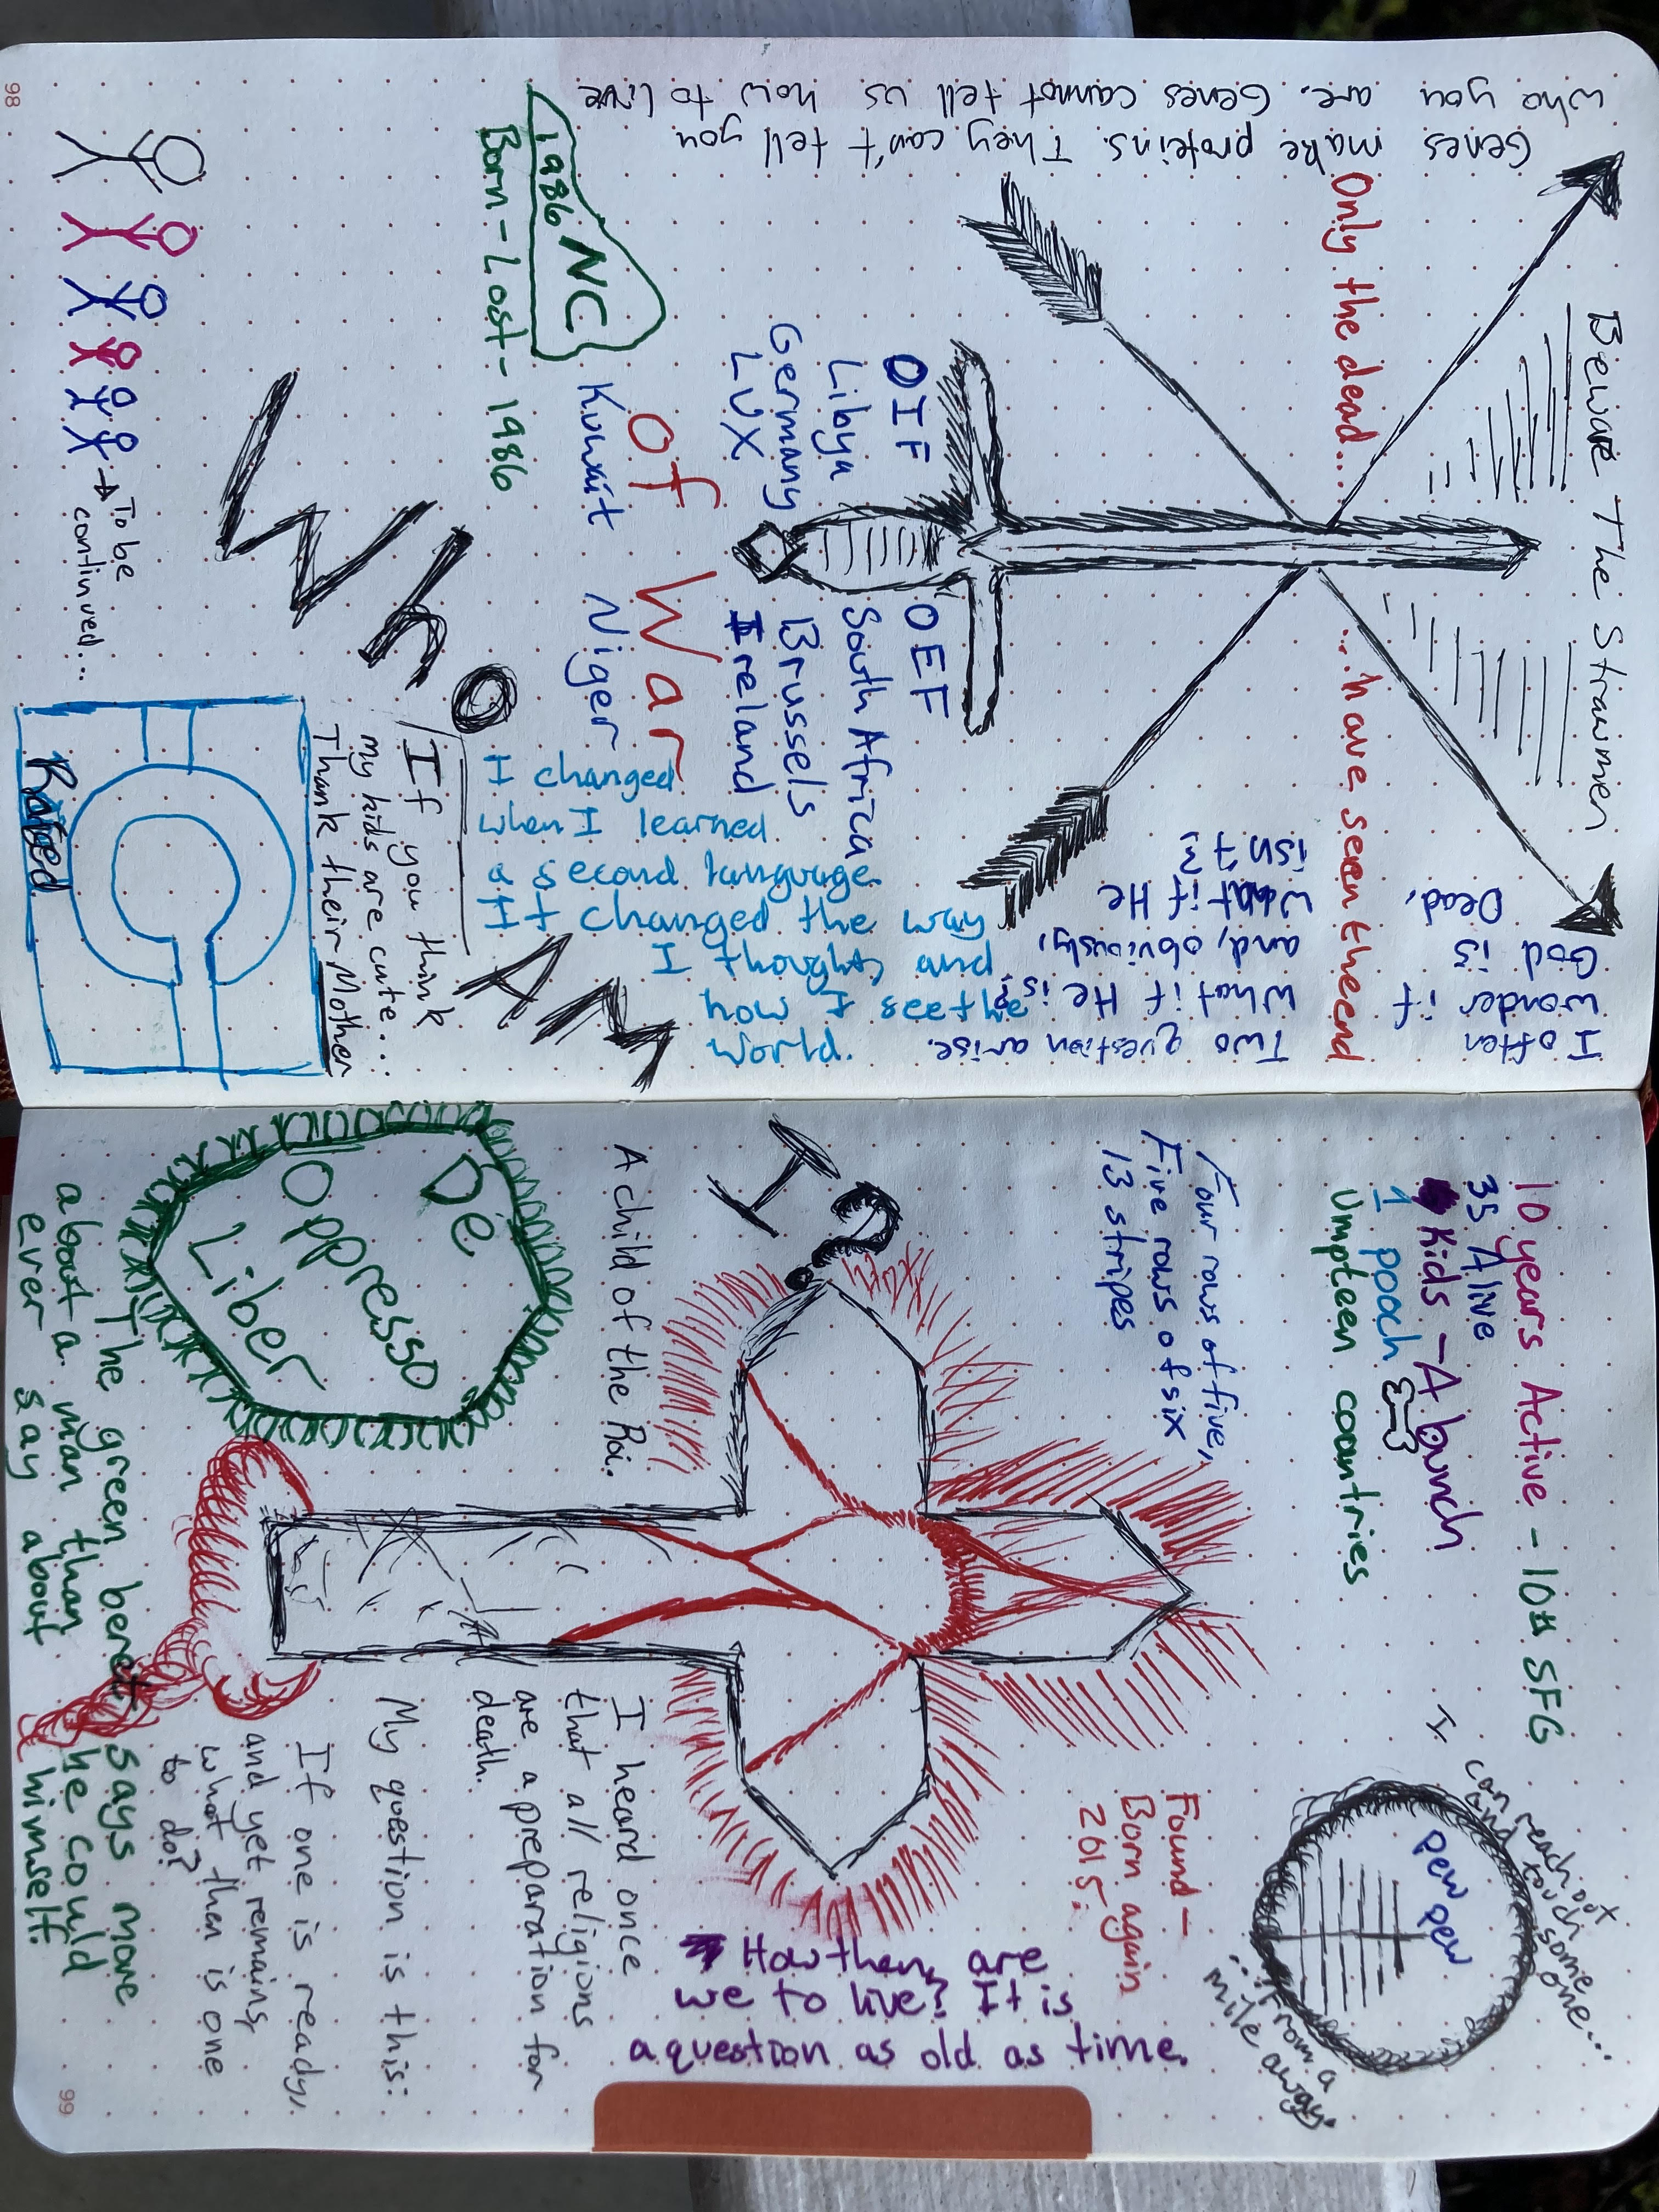 Beware The Strawmen
Genes make proteins. They can't tell you
who you are. Genes cannot tell us how to live
Only the dead...
...have seen the end
I often
wonder if
God is
Dead,
Two question arise.
What if He is?
and, obviously,
what if He
isn't?
OIF
Libya
Germany
LUX
OEF
South Africa
Brussels
Ireland
of War
Kuwait
Niger
I changed
when I learned
a second language.
It changed the way
I thought, and
how I see the
world.
NC
1986
Born-Lost-1986
Who
Am
I?
If you think
my kids are cute...
Thank their Mother
Raised
To be
continued...
98
10 years Active - 10th SFG
35 Alive
Kids - A bunch
1 pooch
Umpteen countries
I can reach out
and touch
some
one...
Pew
Pew
...From a
mile away.
Four rows of five,
Five rows of six
13 stripes
Found-
Born again
2015.
How then are
we to live? It is
a question as old as time.
A child of the Roi.
De
Oppresso
Liber
I heard once
that all religions
are a preparation for
death.
My question is this:
If one is ready,
and yet remains,
what then is one
to do?
The green beret says more
about a man than he could
ever say about himself.
99